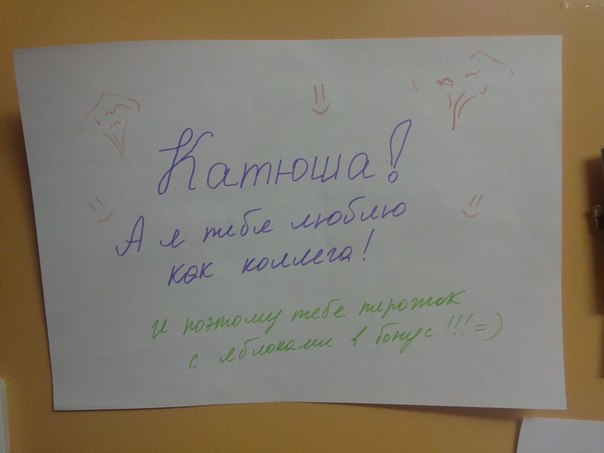 Катюша!
А я тебя люблю
как коллега!
И поэтому тебе пирожок
с яблоками в бонус!!!=)